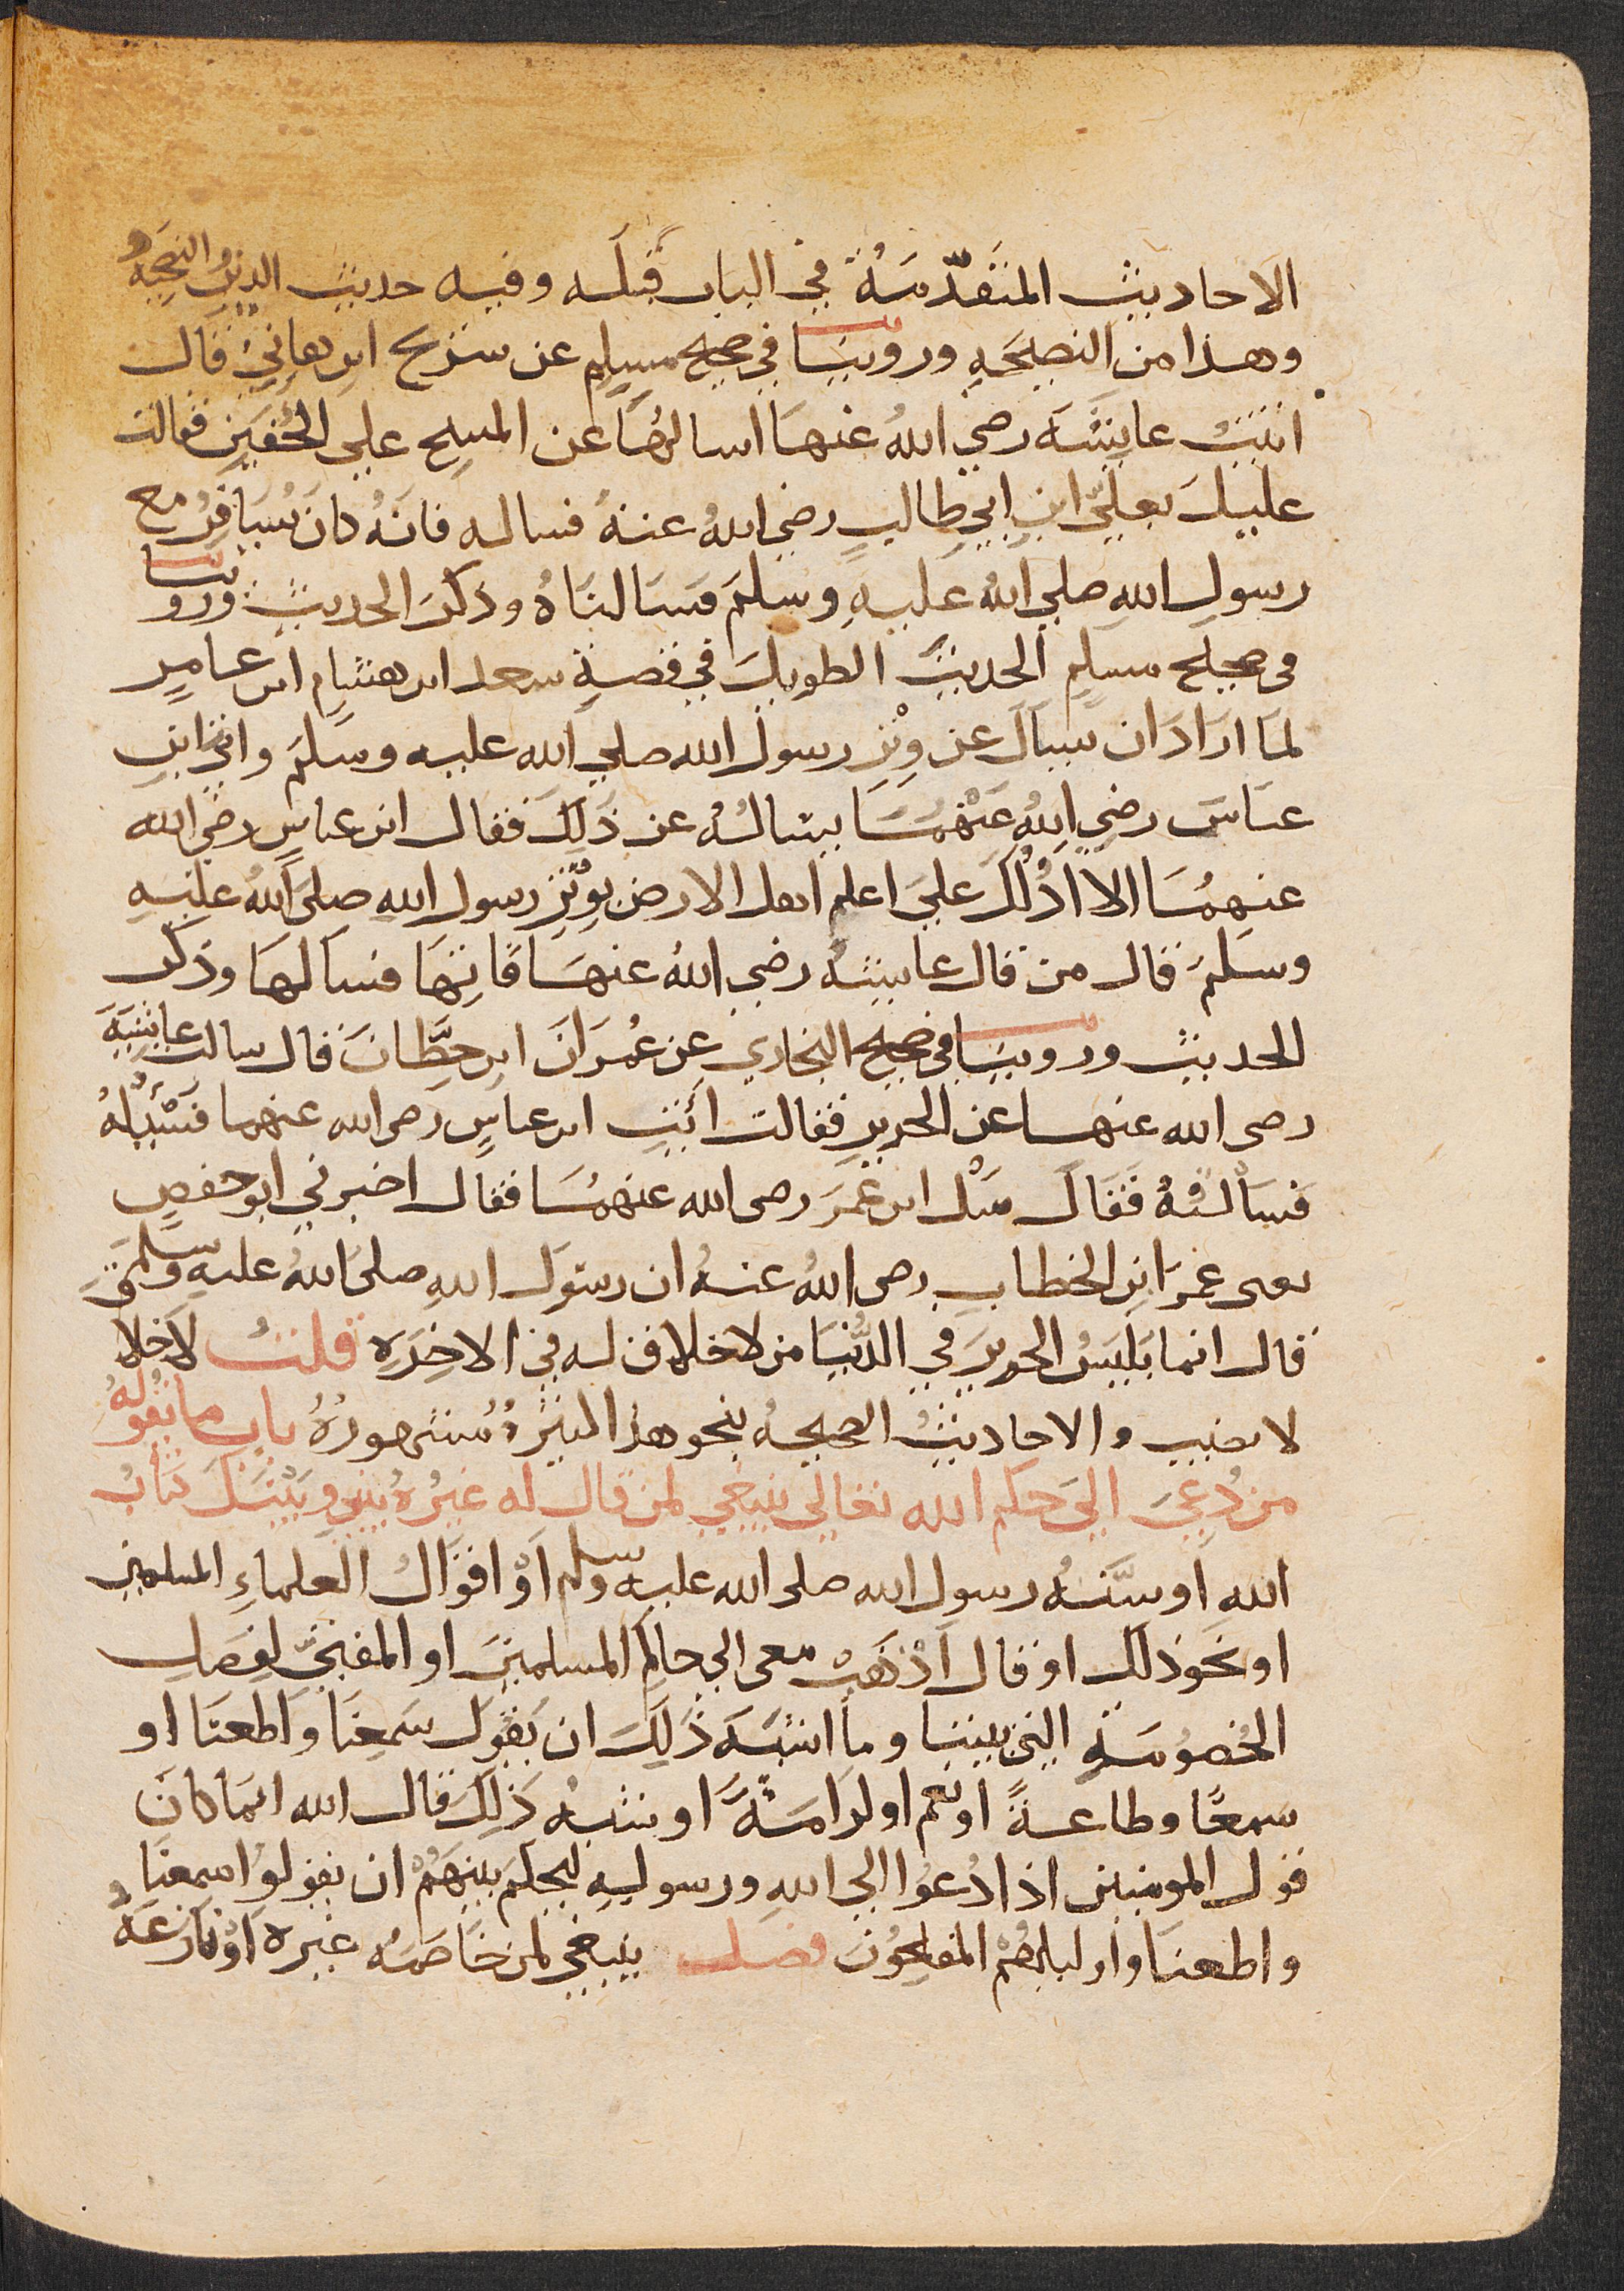 الاحاديث المتقدّمَةُ في الباب قبلَه وفيه حديث الدينُ النصيحةُ
وهذا من النصيحَهِ وروينَا في صحيح مسلِم عن شريح ابنِ هانِئ قال
اتيتُ عايشَه رضي اللهُ عنهَا اسالهَا عن المسح علي الخُفينِ فقالت
عليكَ بعليّ ابنِ ابي طالبٍ رضي اللهُ عنهُ فساله فانَهُ كانَ يُسَافِرُ مع
رسولِ اللهِ صلي اللهُ عَليهِ وسلمَ فسَالنَاهُ وذكرَ الحديث وروينا
في صحيح مسلِم الحديثَ الطويلَ في قصةِ سعد ابن هشامِ ابن عامرٍ
لمَا ارَادَ ان يسالَ عن وِتْرِ رسول الله صلي الله عليه وسلمَ واتي ابن
عباسَ رضي اللهُ عَنْهمَا يسالُهُ عن ذَلِكَ فقال ابن عباسٍ رضي الله
عنهمَا الا ادُلُكَ عليَ اعلم اهل الارض بوِتْرِ رسول اللهِ صلىَ اللهُ عليَهِ
وسلمَ قال من قال عايشهُ رضي اللهُ عنهَا فَاتِهَا فسَالهَا وذكر
الحديث وروينَا في صحيح البخاري عن عُمرَانَ ابن حِطَّانَ قال سالت عايشهَ
رضى الله عنها عن الحريرِ فقالت أئتِ ابن عباسٍ رضى الله عنهما فسْئَلْهُ
فسَأَلتُهُ فَقَالَ سَلْ ابن عُمرَ رضى الله عنهمَا فقال اخبرني ابو حفصٍ
يعنى عُمرَ ابن الخطابِ رضى اللهُ عنهُ ان رسولَ اللهِ صلىَ اللهُ عليهِ وسلمَ
قال انما يَلبَسُ الحريرَ في الدُّنيَا من لا خلاقَ له في الاخِرَهِ قلتُ لا خَلاقَ
لا نصيب والاحاديثُ الصحيحهُ بنحو هذا كثيرةُ مُشهورةُ باب ما يقولهُ
من دُعِيَ اليَ حكم الله تعالي ينبغي لمن قال له غيرُهُ بيني وبَيْنَكَ كتابُ
اللهِ او سُّنهُ رسول الله صلى الله عليه وسلم اَوْ اقوَالُ العلماءِ المسلمين
او نحَو ذلكَ او قال اذْهَبْ معى الى حاكِمِ المسلمينَ او المفتيّ لِفصلِ
الخُصومَهِ التي بيننا وما اشبَهَ ذَلِكَ ان يَقُولَ سَمِعنَا وَاطعنَا او
سَمعًا وطاعةً او نعم او كرَامَةً او شبهُ ذَلِكَ قال الله انمَا كانَ
قول المومنين اذا دُعُوا الي اللهِ ورسولِهِ ليحكمَ بينهمْ ان يقولوُا سمعنَا
واطعنَا واوليك همُ المفلِحُونَ فصل ينبغي لمن خَاصَمَه غيره اَوْ نَازعَهُ